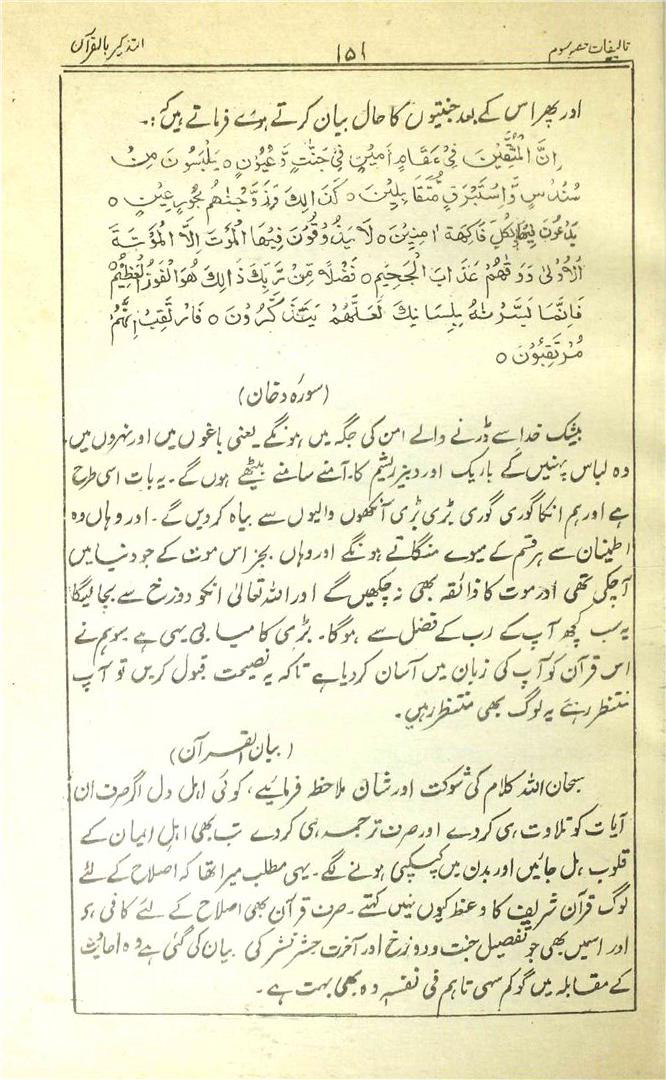 تالیفات حصہ سوم
۱۵۱
التذکیر بالقرآن
اور پھر اس کے بعد جنتیوں کا حال بیان کرتے ہوئے فرماتے ہیں کہ :۔
اِنَّ الْمُتَّقِيْنَ فِيْ مَقَامٍ اَمِيْنٍ فِيْ جَنّٰتٍ وَّعُيُوْنٍ ٥ يَلْبَسُوْنَ مِنْ
سُنْدُسٍ وَّاِسْتَبْرَقٍ مُّتَقَابِلِيْنَ ٥ كَذَالِكَ وَزَوَّجْنٰهُمْ بِحُوْرٍ عِيْنٍ ٥
يَدْعُوْنَ فِيْهَا بِكُلِّ فَاكِهَةٍ اٰمِنِيْنَ ٥ لَا يَذُوْقُوْنَ فِيْهَا الْمَوْتَ اِلَّا الْمَوْتَةَ
الْاُوْلٰى وَوَقٰهُمْ عَذَابَ الْجَحِيْمِ ٥ فَضْلًا مِّنْ رَّبِّكَ ذَالِكَ هُوَ الْفَوْزُ الْعَظِيْمُ
فَاِنَّمَا يَسَّرْنٰهُ بِلِسَانِكَ لَعَلَّهُمْ يَتَذَكَّرُوْنَ ٥ فَارْتَقِبْ اِنَّهُمْ
مُرْتَقِبُوْنَ ٥
(سورۂ دخان)
بیشک خدا سے ڈرنے والے امن کی جگہ میں ہونگے یعنی باغوں میں اور نہروں میں،
وہ لباس پہنیں گے باریک اور دبیز ریشم کا۔ آمنے سامنے بیٹھے ہوں گے۔ یہ بات اسی طرح
ہے اور ہم انکا گوری گوری بڑی بڑی آنکھوں والیوں سے بیاہ کردیں گے۔ اور وہاں وہ
اطینان سے ہر قسم کے میوے منگاتے ہونگے اور وہاں بجز اس موت کے جو دنیا میں
آچکی تھی اور موت کا ذائقہ بھی نہ چکھیں گے اور اللہ تعالیٰ انکو دوزخ سے بچا لیگا
یہ سب کچھ آپ کے رب کے فضل سے ہوگا۔ بڑی کامیابی یہی ہے سو ہم نے
اس قرآن کو آپ کی زبان میں آسان کردیا ہے تاکہ یہ نصیحت قبول کریں تو آپ
منتظر رہئے یہ لوگ بھی منتظر ہیں۔
(بیان القرآن)
سبحان اللہ کلام کی شوکت اور شان ملاحظہ فرمائیے، کوئی اہل دل اگر صرف ان
آیات کو تلاوت ہی کردے اور صرف ترجمہ ہی کردے تب بھی اہل ایمان کے
قلوب ہل جائیں اور بدن میں کپکپی ہونے لگے۔ یہی مطلب میرا تھا کہ اصلاح کے لئے
لوگ قرآن شریف کا وعظ کیوں نہیں کہتے۔ صرف قرآن بھی اصلاح کے لئے کافی ہے
اور اسمیں بھی جو تفصیل جنت و دوزخ اور آخرت حشر نشر کی بیان کی گئی ہے وہ احادیث
کے مقابلہ میں گو کم سہی تاہم فی نفسہٖ وہ بھی بہت ہے۔